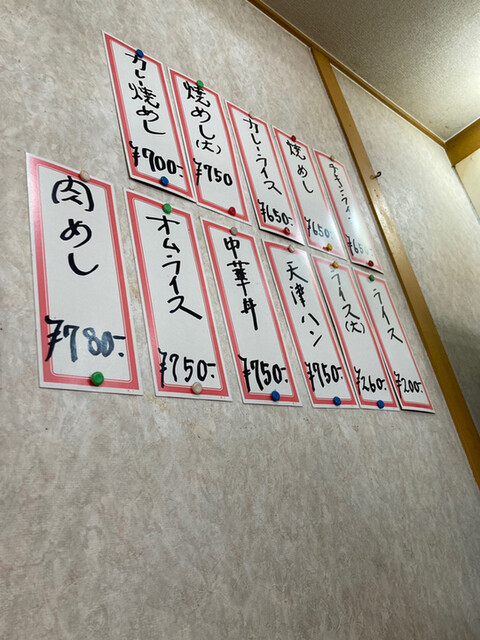 チキンライス
¥650-
焼めし
¥650-
カレーライス
¥650-
焼めし(大)
¥750
カレー焼めし
¥700-
ライス
¥200-
ライス(大)
¥260-
天津ハン
¥750-
中華丼
¥750-
オムライス
¥750-
肉めし
¥780-